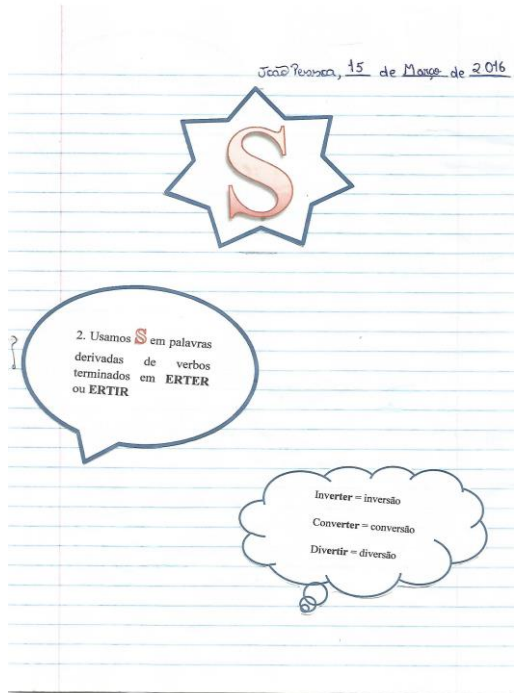 João Pessoa, 15 de Março de 2016
S
2. Usamos S em palavras
derivadas de verbos
terminados em ERTER
ou ERTIR
Inverter = inversão
Converter = conversão
Divertir = diversão